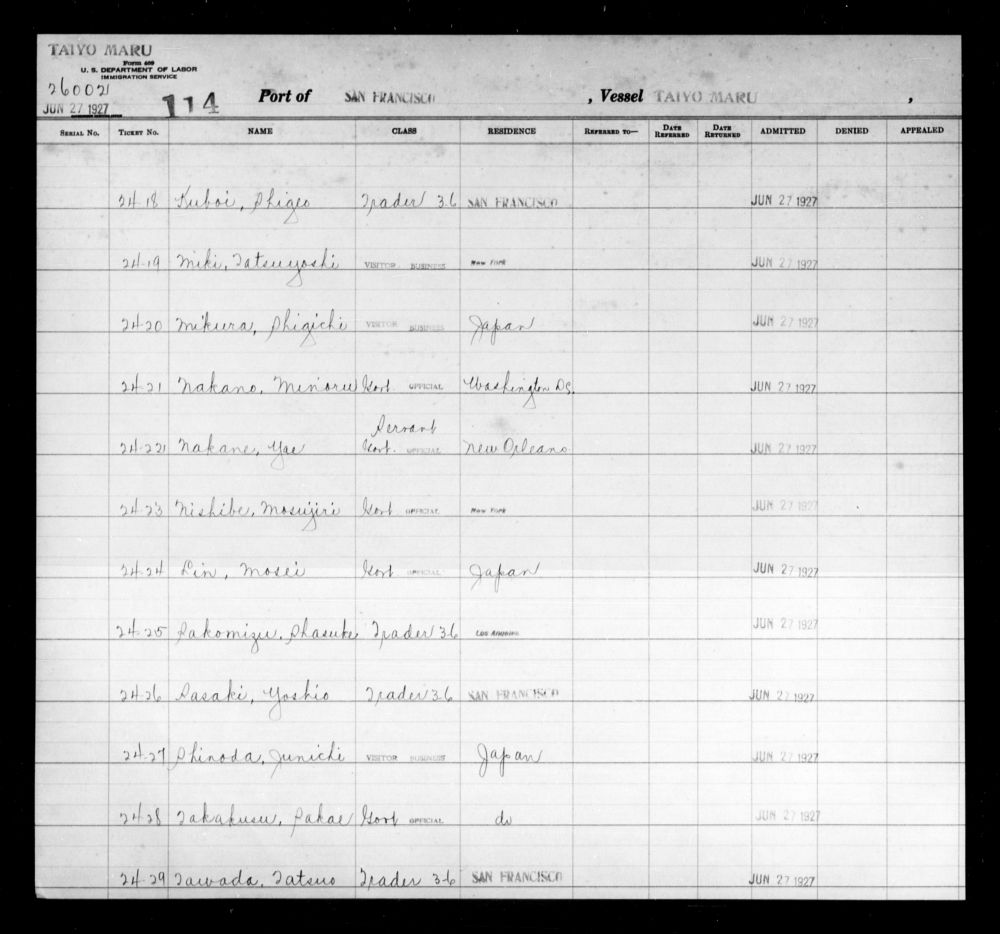 TAIYO MARU
Form 609
U. S. DEPARTMENT OF LABOR
IMMIGRATION SERVICE
26002/
JUN 27 1927 114 Port of SAN FRANCISCO , Vessel TAIYO MARU ,
SERIAL NO. TICKET NO. NAME CLASS RESIDENCE REFERRED TO— DATE REFERRED DATE RETURNED ADMITTED DENIED APPEALED
24-18 Kuboi, Shigeo Trader 3-6 SAN FRANCISCO JUN 27 1927
24-19 Miki, Tatsuyoshi VISITOR BUSINESS New York JUN 27 1927
24-20 Mikura, Shigichi VISITOR BUSINESS Japan JUN 27 1927
24-21 Nakano, Minoru Govt OFFICIAL Washington DC. JUN 27 1927
Servant
24-22 Nakane, Yae Govt. OFFICIAL New Orleans JUN 27 1927
24-23 Nishibe, Mosujiri Govt OFFICIAL New York JUN 27 1927
24-24 Lin, Mosei Govt OFFICIAL Japan JUN 27 1927
24-25 Sakomizu, Shasuke Trader 3-6 Los Angeles JUN 27 1927
24-26 Sasaki, Yoshio Trader 3-6 SAN FRANCISCO JUN 27 1927
24-27 Shinoda, Junichi VISITOR BUSINESS Japan JUN 27 1927
24-28 Takakusu, Sakae Govt OFFICIAL do JUN 27 1927
24-29 Tawada, Tatsuo Trader 3-6 SAN FRANCISCO JUN 27 1927